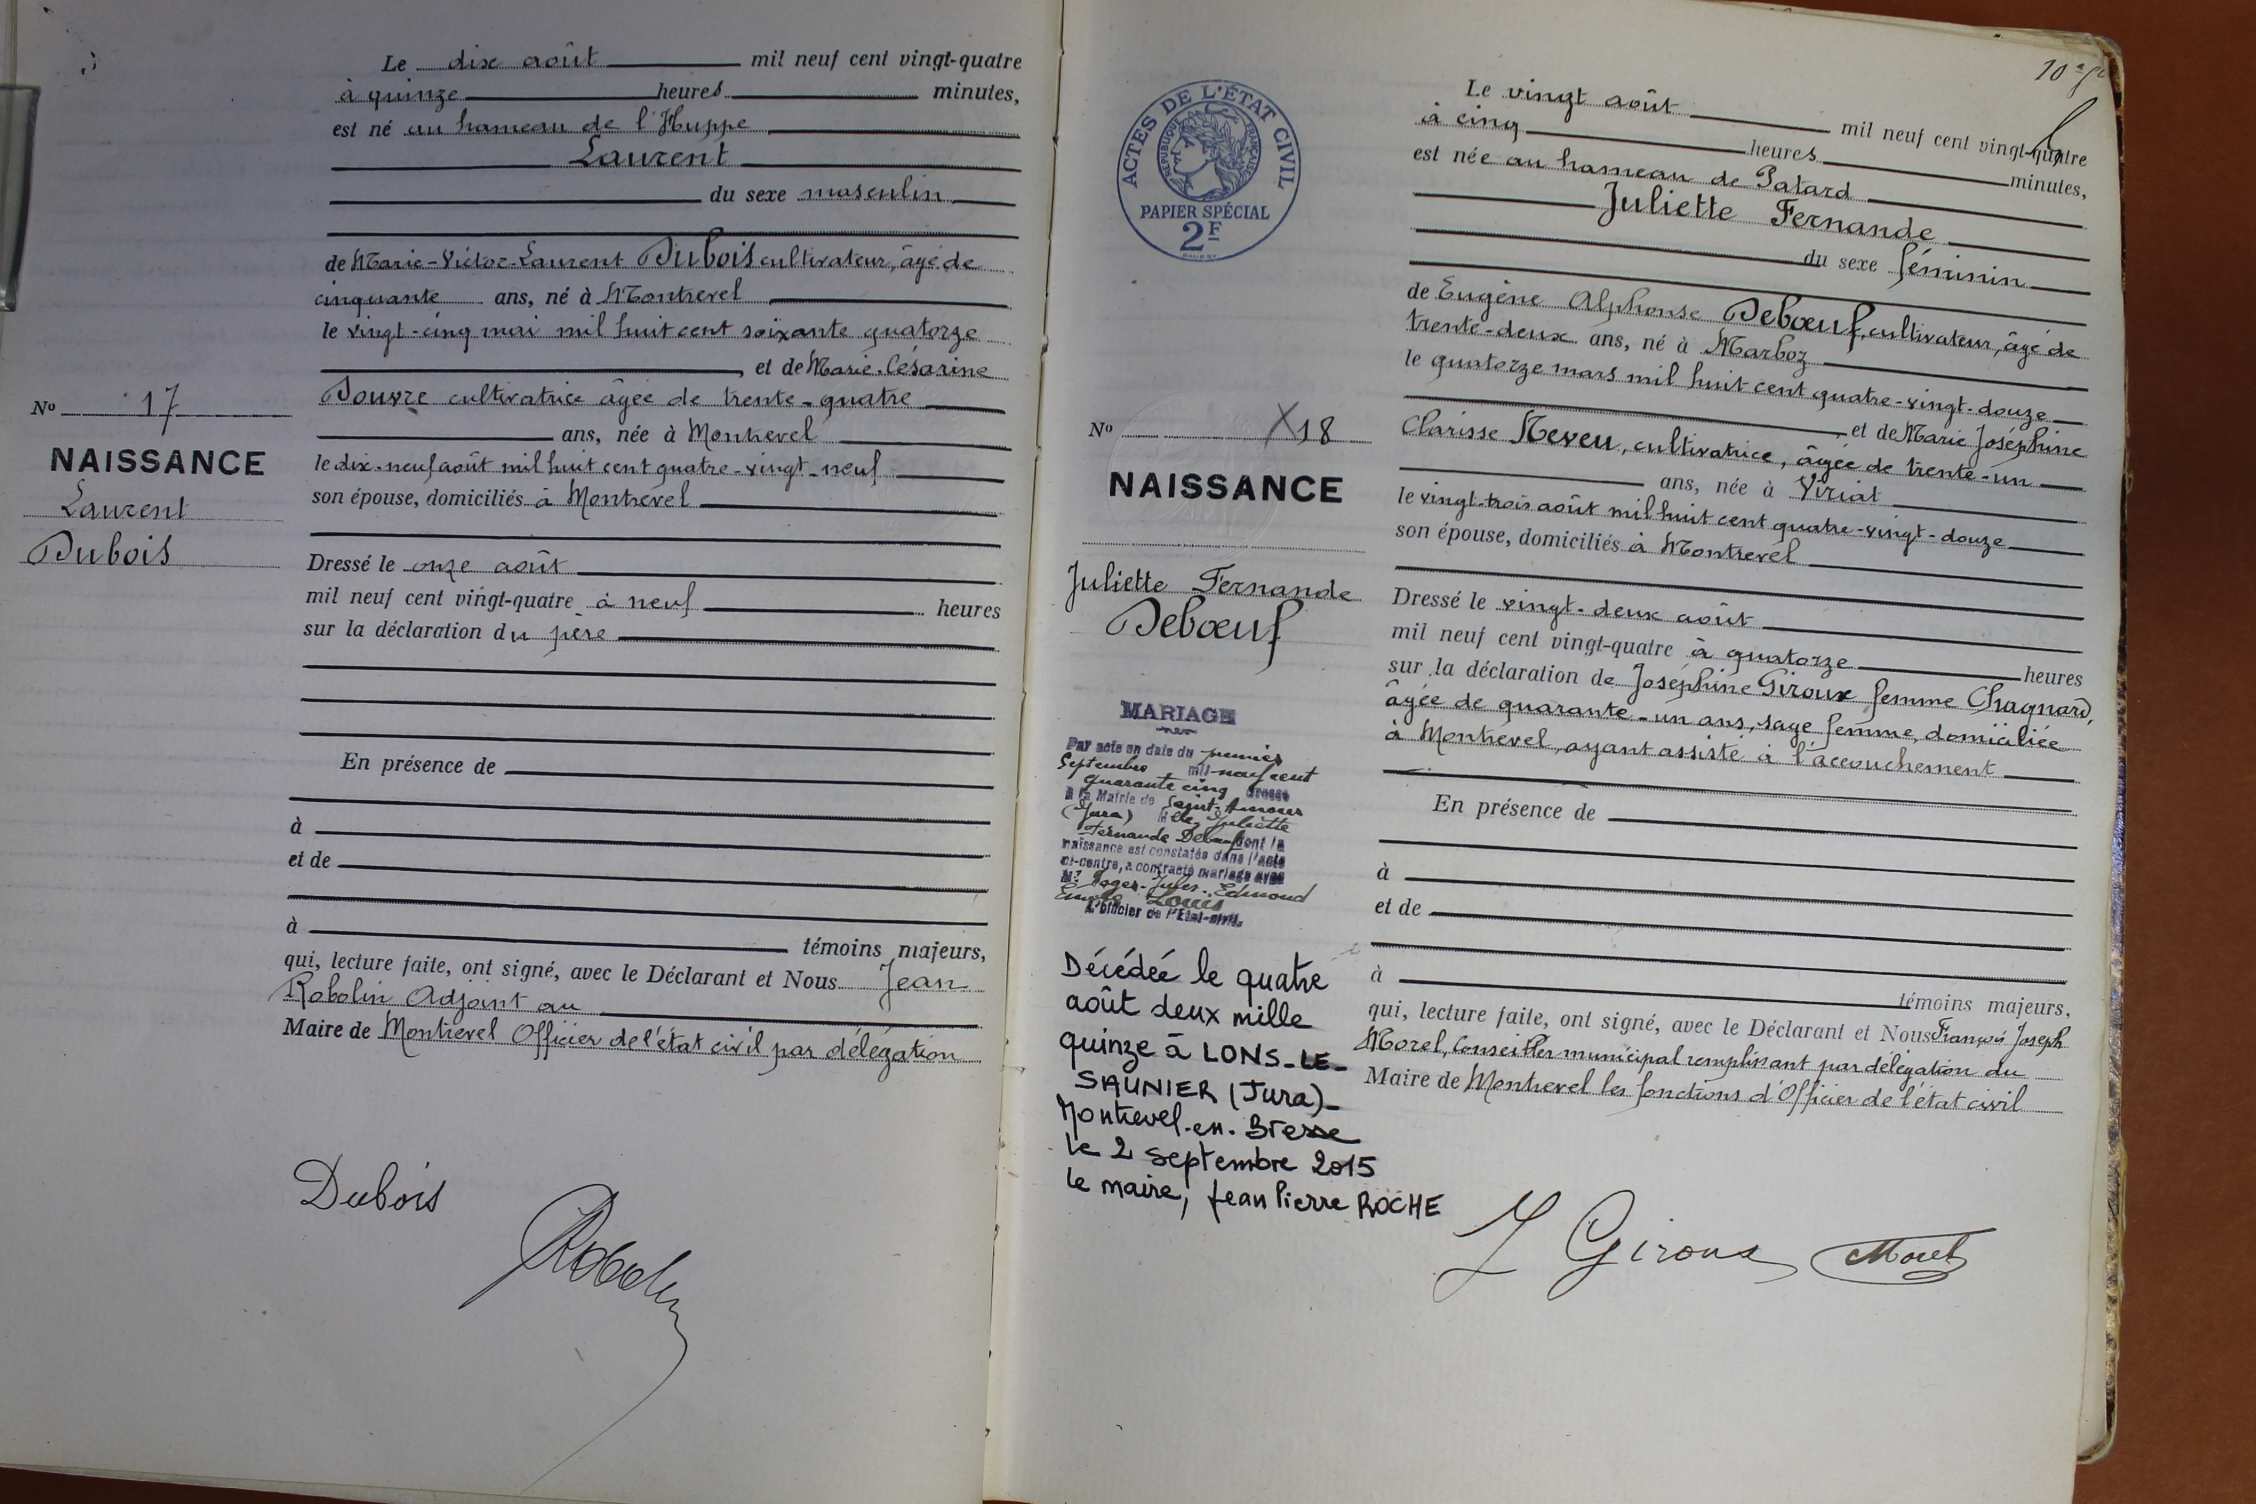 Le dix août mil neuf cent vingt-quatre
à quinze heures minutes,
est né au hameau de l'Huppe
Laurent
du sexe masculin
de Marie-Victor-Laurent Dubois cultivateur, âgé de
cinquante ans, né à Montrevel
le vingt-cinq mai mil huit cent soixante quatorze
et de Marie-Césarine
Douvre cultivatrice âgée de trente-quatre
ans, née à Montrevel
le dix-neuf août mil huit cent quatre-vingt-neuf
son épouse, domiciliés à Montrevel
Dressé le onze août
mil neuf cent vingt-quatre à neuf heures
sur la déclaration du père
En présence de
à
et de
à témoins majeurs,
qui, lecture faite, ont signé, avec le Déclarant et Nous Jean
Robolin Adjoint au
Maire de Montrevel Officier de l'état civil par délégation
Dubois
Robolin
No 17
NAISSANCE
Laurent
Dubois
ACTES DE L'ÉTAT CIVIL
RÉPUBLIQUE FRANÇAISE
PAPIER SPÉCIAL
2F
No 18
NAISSANCE
Juliette Fernande
Debœuf
MARIAGE
Par acte en date du premier
Septembre mil-neuf cent
quarante cinq dressé
à la Mairie de Saint-Amour
(Jura) Juliette
Fernande Debœuf dont la
naissance est constatée dans l'acte
ci-contre, a contracté mariage avec
Mr Roger-Jules-Edmond
Louis
L'Officier de l'Etat-civil.
Décédée le quatre
août deux mille
quinze à LONS-LE-
SAUNIER (Jura)-
Montrevel-en-Bresse
le 2 septembre 2015
le maire, Jean Pierre ROCHE
Le vingt août mil neuf cent vingt-quatre
à cinq heures minutes,
est née au hameau de Patard
Juliette Fernande
du sexe féminin
de Eugène Alphonse Debœuf, cultivateur, âgé de
trente-deux ans, né à Marboz
le quatorze mars mil huit cent quatre-vingt-douze
et de Marie Joséphine
Clarisse Neveu, cultivatrice, âgée de trente-un
ans, née à Viriat
le vingt-trois août mil huit cent quatre-vingt-douze
son épouse, domiciliés à Montrevel
Dressé le vingt-deux août
mil neuf cent vingt-quatre à quatorze heures
sur la déclaration de Joséphine Giroux femme Chagnard,
âgée de quarante-un ans, sage femme, domiciliée
à Montrevel, ayant assisté à l'accouchement
En présence de
à
et de
à témoins majeurs,
qui, lecture faite, ont signé, avec le Déclarant et Nous François Joseph
Morel, Conseiller municipal remplissant par délégation du
Maire de Montrevel les fonctions d'Officier de l'état civil
J Giroux
Morel